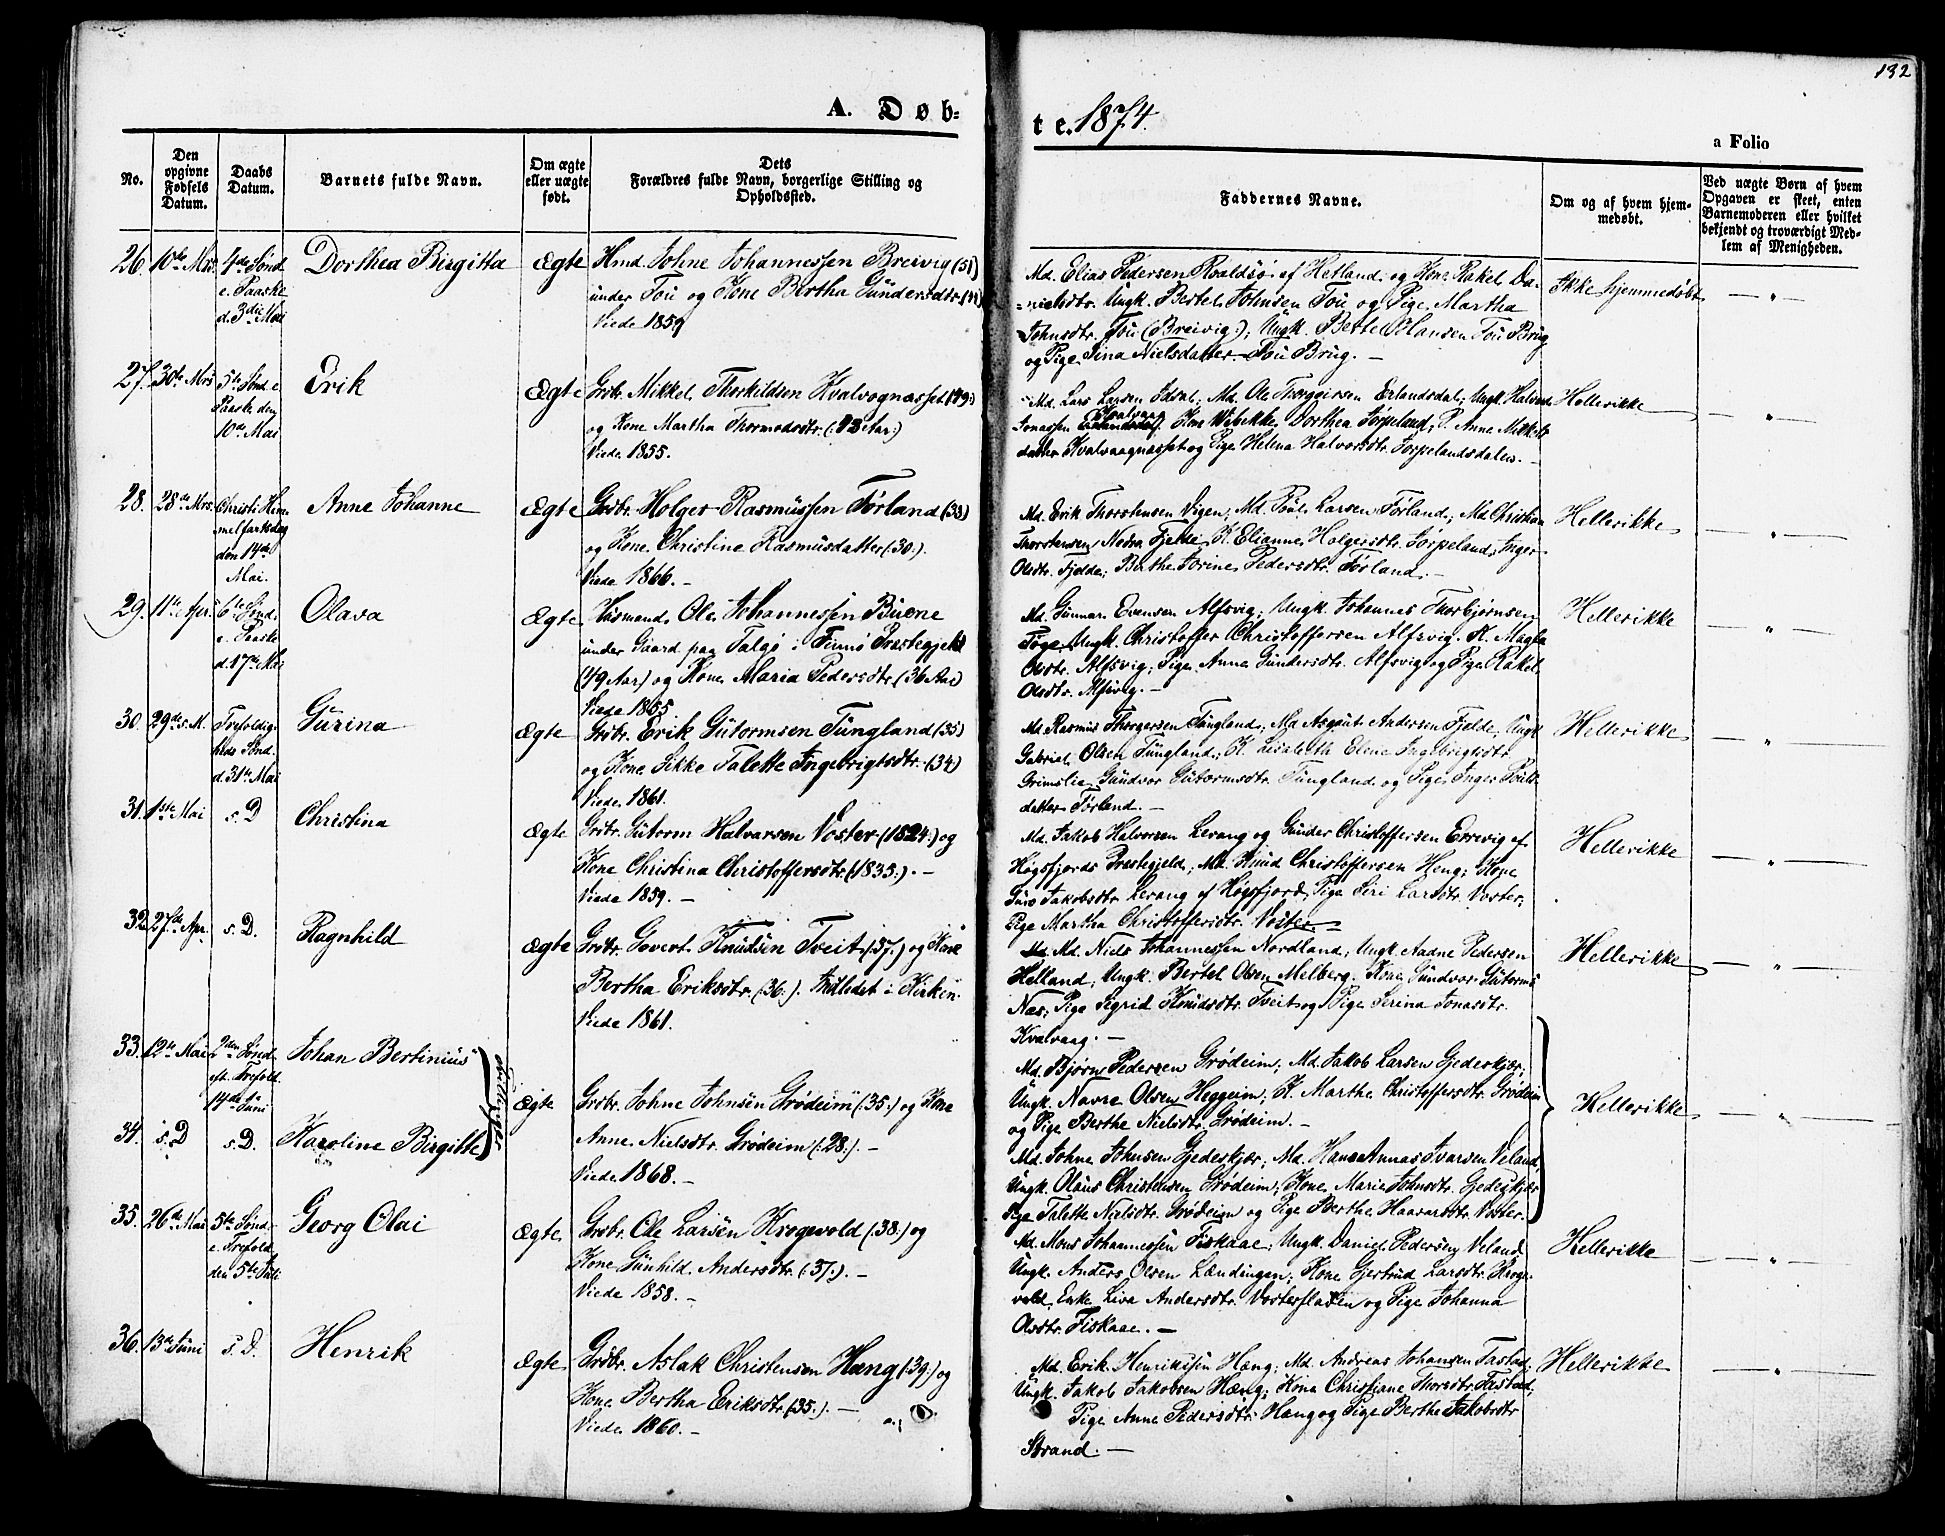 132
A. Døb-
te. 1874.
a Folio
No.
Den opgivne Fødsels Datum.
Daabs Datum.
Barnets fulde Navn.
Om ægte eller uægte født.
Dets Forældres fulde Navn, borgerlige Stilling og Opholdssted.
Faddernes Navne.
Om og af hvem hjemmedøbt.
Ved uægte Børn af hvem Opgaven er skeet, enten Barnemoderen eller hvilket bekjendt og troværdigt Medlem af Menigheden.
26. 10de Mrs. 4de Sønd. e. Paaske d. 3die Mai
Dorthea Birgitta
Ægte
Hmd. Johne Johannessen Breivig (51)
under Tou og Kone Bertha Gundersdtr.
Viede 1859
Md. Elias Pedersen Roaldsø af Hetland og Kone Rakel Da-
nielsdtr. Ungk. Bertel Johnsen Tou og Pige Martha
Johnsdtr. Tou (Breivig:), Ungk. Bertel Hansen Tou Brug
og Pige Sina Nielsdatter Tou Brug. —
Ikke hjemmedøbt
27. 30te Mrs 5te Sønd. e. Paaske den 10de Mai
Erik
Ægte
Grbr. Mikkel Thorkildsen Kvalvognæsset (49:)
og Kone Martha Thormodsdtr. (:43 Aar:)
Viede 1855.
Md. Lars Larsen Idsal, Md. Ole Thorgersen Erlandsdal, Ungk. Halvor
Jonassen Kvalvaag. Kone Wibekke Dorthea Jørpeland, P. Anne Mikkels
datter Kvalvaagnæsset og Pige Helena Halvorsdtr. Jørpelandsdalen. —
Hellerikke
28. 28de Mrs. Christi Him-
melfartsdag
den 14de
Mai.
Anne Johanne
Ægte
Grbr. Holger Rasmussen Førland (33)
og Kone Christine Rasmusdatter (30:).
Viede 1866. —
Md. Erik Thorstensen Vigen; Md. Poul Larsen Førland; Md Christian
Thorstensen Nedre Fjelde, K. Elianne Holgersdtr. Jørpeland, Inger
Olsdtr. Fjelde; Berthe Torine Pedersdtr. Førland. —
Hellerikke
29. 11te Apr. 6te Sønd. e. Paaske d. 17de Mai
Olava
Ægte
Husmand Ole Johannessen Buene
under Gaard paa Talgø i Finnø Præstegjeld
(49 Aar) og Kone Maria Pedersdtr. (36 Aar)
Viede 1865
Md. Gunnar Evensen Alfsvig; Ungk. Johannes Thorbjørnsen
Ungk. Christoffer Christoffersen Alfsvig. K. Magla
Olsdtr. Alfsvig; Pige Anna Gundersdtr. Alfsvig og Pige Rakel
Olsdtr. Alfsvig. —
Hellerikke
30. 29de s. M. Trefoldig-
heds Sønd.
d. 31te Mai
Gurina
Ægte
Grbr. Erik Gutormsen Tungland (35)
og Kone Sikke Talette Ingebrigtsdtr. (34)
Viede 1861.
Md. Rasmus Thorgersen Tungland, Md Asgaut Andersen Fjelde, Ungk
Gabriel Olsen Tungland, K. Lisabeth Elene Ingebrigtsdtr
Grimslia, Gundvor Gutormsdtr. Tungland og Pige Inger Pouls
datter Førland. —
Hellerikke
31. 1ste Mai s. D
Christina
Ægte
Grbr. Gutorm Halvarsen Voster (1824:) og
Kone Christina Christoffersdtr (1835:). —
Viede 1859. —
Md. Jakob Halvorsen Levang og Gunder Christoffersen Errevig af
Høgsfjords Præstegjeld; Md. Knud Christoffersen Heng; Kone
Jakobsdtr. Levang af Høgsfjord, Pige Siri Larsdtr. Voster,
Pige Martha Christoffersdtr. Voster. —
Hellerikke
32. 27de Apr. s. D.
Ragnhild
Ægte
Grbr. Govert Knudsen Tveit (37:) og Kone
Bertha Eriksdtr. (36:). Indledet i Kirken.
Viede 1861.
Md. Niels Johannessen Nordland, Ungk. Aadne Pedersen
Helland, Ungk. Bertel Olsen Melberg. Kone Gundvor Gutorms
Næs; Pige Sigrid Knudsdtr. Tveit og Pige Serina Jonasdtr.
Kvalvaag. —
Hellerikke
33. 12te Mai 2den Sønd.
eft. Trefold.
14de Juni
Johan Bertinius
34. s. D s. D.
Karoline Birgitte
Tvillinger
Ægte
Grbr. Johne Johnsen Grødeim (:35:) og Kone
Anne Nielsdtr. Grødeim (:28:). —
Viede 1868. —
Md. Bjørn Pedersen Grødeim; Md. Jakob Larsen Gjedeskjær;
Ungk. Navre Olsen Heggeim; K. Marthe Christoffersdtr. Grødeim
og Pige Berthe Nielsdtr. Grødeim. —
Md. Johne Johnsen Gjedeskjær; Md. Hans Annas Ivarsen Veland,
Ungk. Olaus Christensen Grødeim; Kone Marie Johnsdtr. Gjedeskjær
Pige Talette Nielsdtr. Grødeim og Pige Berthe Haavardsdtr. Voster.
Hellerikke
35. 26te Mai 5te Sønd.
e. Trefold.
den 5te Juli
Georg Olai
Ægte.
Grbr. Ole Larsen Krogevold (38:) og
Kone Gunhild Andersdtr. (:37:). —
Viede 1858. —
Md. Mons Johannessen Fiskaae; Ungk. Daniel Pedersen Veland,
Ungk. Anders Olsen Lændingen; Kone Gjertrud Larsdtr. Kroge-
vold, Enke Liva Andersdtr. Vosterfladen og Pige Johanna
Olsdtr. Fiskaae. —
Hellerikke
36. 13de Juni s. D.
Henrik
Ægte
Grbr. Aslak Christensen Hæng (39:) og
Kone Bertha Eriksdtr. (35:). —
Viede 1860. —
Md. Erik Henriksen Hæng; Md. Andreas Johansen Tastad;
Ungk. Jakob Jakobsen Hæng; Kona Christiane Thorsdtr. Tastad,
Pige Anne Pedersdtr. Hæng og Pige Berthe Jakobsdtr
Strand. —
Hellerikke